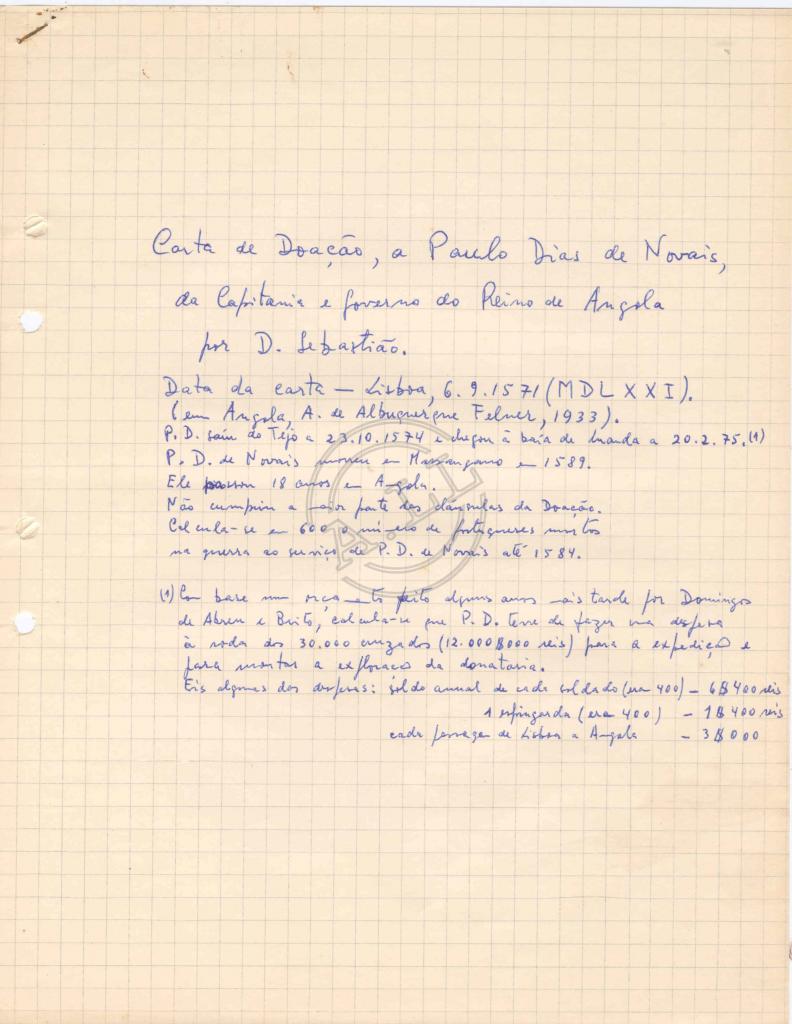 Carta de Doação, a Paulo Dias de Novais,
da Capitania e Governo do Reino de Angola
por D. Sebastião.
Data da carta – Lisboa, 6.9.1571 (MDLXXI).
(em Angola, A. de Albuquerque Felner, 1933).
P. D. saiu do Tejo a 23.10.1574 e chegou à baía de Luanda a 20.2.75. (1)
P. D. de Novais morreu em Massangano em 1589.
Ele passou 18 anos em Angola.
Não cumpriu a maior parte das cláusulas da Doação.
Calcula-se em 600 o número de portugueses mortos
na guerra ao serviço de P. D. de Novais até 1584.
(1) Com base num orçamento feito alguns anos mais tarde por Domingos
de Abreu e Brito, calcula-se que P. D. teve de fazer uma despesa
à roda dos 30.000 cruzados (12.000$000 reis) para a expedição e
para montar a exploração da donataria.
Eis algumas das despesas: soldo annual de cada soldado (eram 400) – 6$400 reis
1 espingarda (eram 400) – 1$400 reis
cada passagem de Lisboa a Angola – 3$000
A.LL